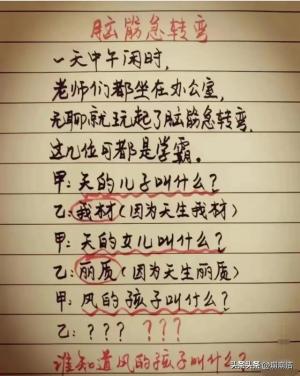 脑筋急转弯
一天中午闲时,
老师们都坐在办公室,
无聊就玩起了脑筋急转弯,
这几位可都是学霸。
甲:天的儿子叫什么?
乙:我材(因为天生我材)
甲:天的女儿叫什么?
乙:丽质(因为天生丽质)
甲:风的孩子叫什么?
乙:? ? ? ? ? ?
谁知道风的孩子叫什么?